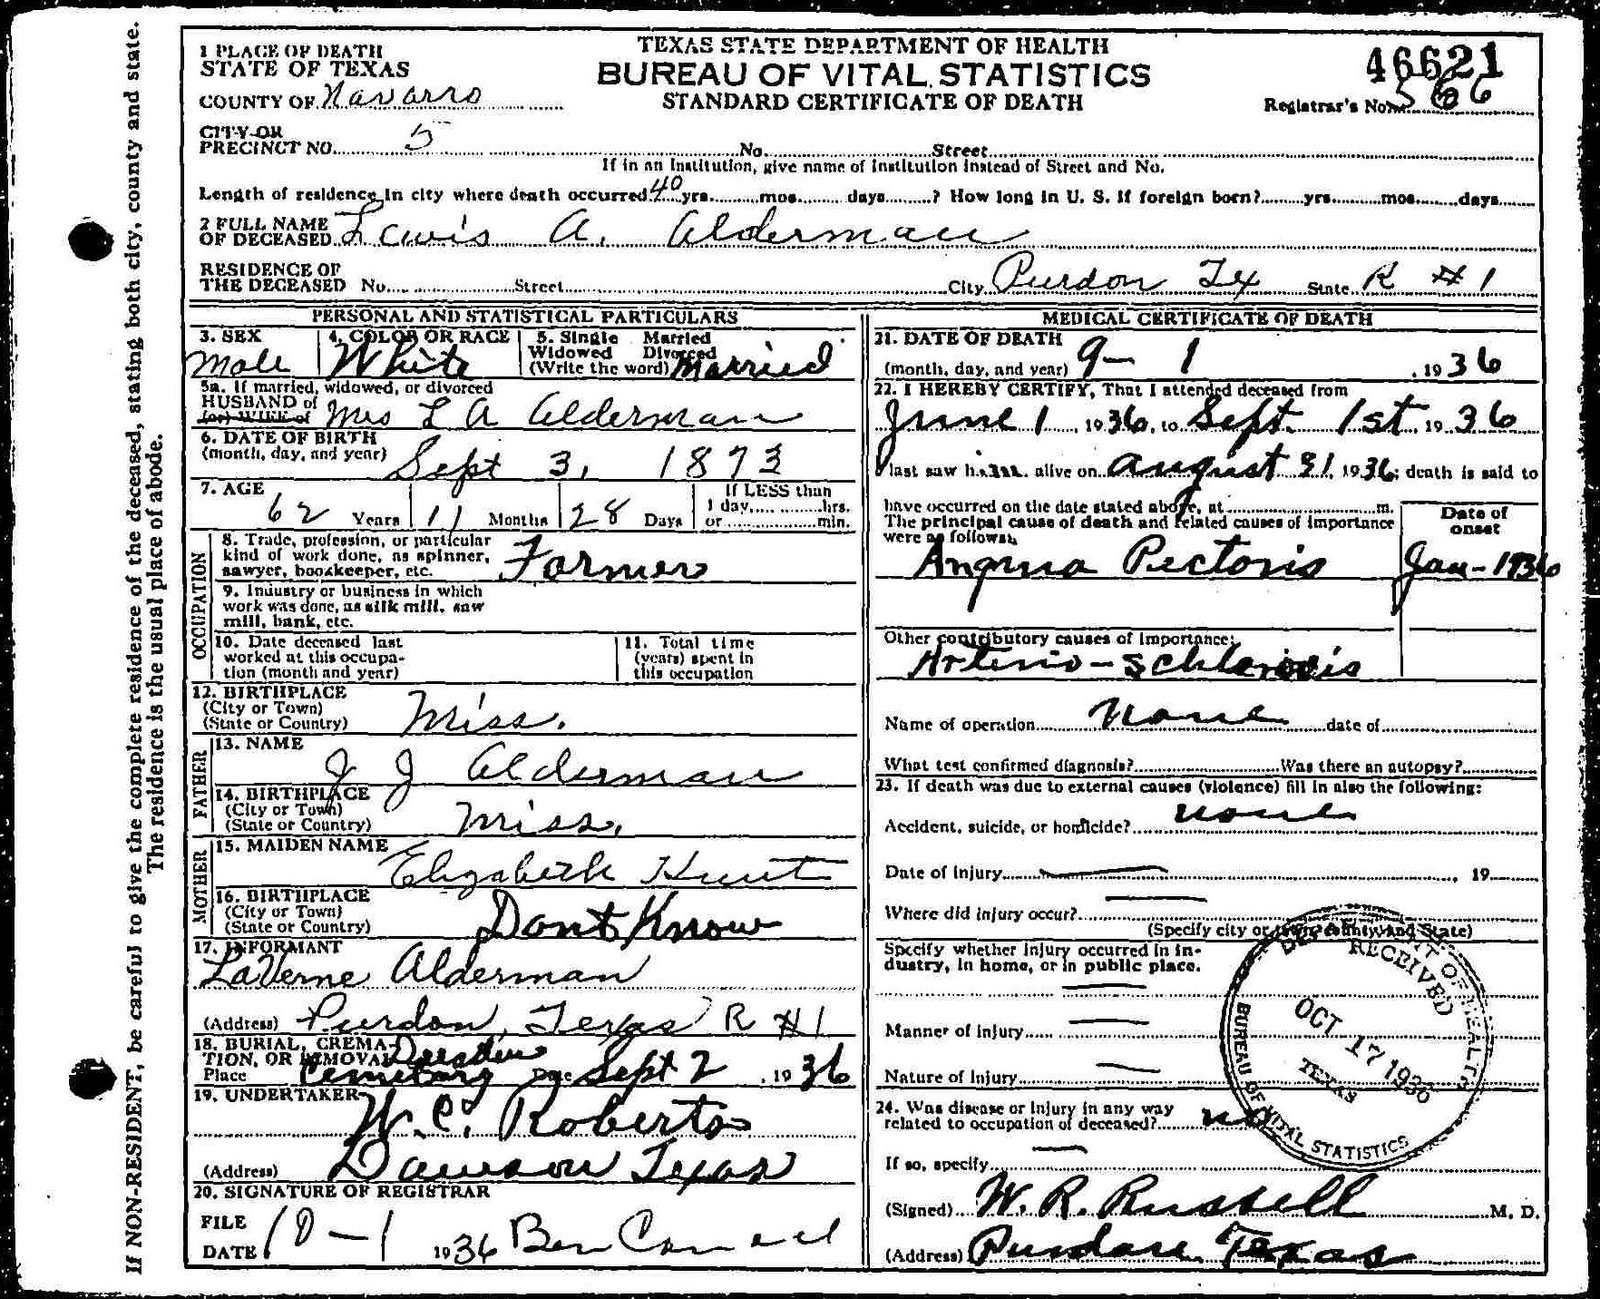 If NON-RESIDENT, be careful to give the complete residence of the deceased, stating both city, county and state.
The residence is the usual place of abode.
1 PLACE OF DEATH
STATE OF TEXAS
COUNTY OF Navarro
TEXAS STATE DEPARTMENT OF HEALTH
BUREAU OF VITAL STATISTICS
STANDARD CERTIFICATE OF DEATH
46621
Registrar's No. 566
CITY OR
PRECINCT NO. 5 No. Street
If in an Institution, give name of Institution instead of Street and No.
Length of residence in city where death occurred 40 yrs. mos. days ? How long in U. S. if foreign born? yrs. mos. days
2 FULL NAME
OF DECEASED Lewis A. Alderman
RESIDENCE OF
THE DECEASED No. Street City Purdon Tx State R #1
PERSONAL AND STATISTICAL PARTICULARS
3. SEX Male
4. COLOR OR RACE White
5. Single Married
Widowed Divorced
(Write the word) Married
5a. If married, widowed, or divorced
HUSBAND of
(or) WIFE of Mrs L A Alderman
6. DATE OF BIRTH
(month, day, and year) Sept 3, 1873
7. AGE 62 Years 11 Months 28 Days
If LESS than
1 day, hrs.
or min.
OCCUPATION
8. Trade, profession, or particular
kind of work done, as spinner,
sawyer, bookkeeper, etc. Farmer
9. Industry or business in which
work was done, as silk mill, saw
mill, bank, etc.
10. Date deceased last
worked at this occupa-
tion (month and year)
11. Total time
(years) spent in
this occupation
12. BIRTHPLACE
(City or Town)
(State or Country) Miss.
FATHER
13. NAME J J Alderman
14. BIRTHPLACE
(City or Town)
(State or Country) Miss.
MOTHER
15. MAIDEN NAME Elizabeth Hunt
16. BIRTHPLACE
(City or Town)
(State or Country) Dont Know
17. INFORMANT
LaVerne Alderman
(Address) Purdon, Texas R #1
18. BURIAL, CREMA-
TION, OR REMOVAL Dresden
Place Cemetary Date Sept 2, 1936
19. UNDERTAKER
W. C. Roberts
(Address) Dawson Texas
20. SIGNATURE OF REGISTRAR
FILE
DATE 10-1 1936 Ben
MEDICAL CERTIFICATE OF DEATH
21. DATE OF DEATH
(month, day, and year) 9- 1, 1936
22. I HEREBY CERTIFY, That I attended deceased from
June 1, 1936, to Sept. 1st, 1936
I last saw him alive on August 31, 1936; death is said to
have occurred on the date stated above, at m.
The principal cause of death and related causes of importance
were as follows:
Date of
onset
Angina Pectoris Jan-1936
Other contributory causes of importance:
Arterio-schlerosis
Name of operation None date of
What test confirmed diagnosis? Was there an autopsy?
23. If death was due to external causes (violence) fill in also the following:
Accident, suicide, or homicide? none
Date of injury , 19
Where did injury occur?
(Specify city or town, county and State)
Specify whether injury occurred in in-
dustry, in home, or in public place.
Manner of injury
Nature of injury
24. Was disease or injury in any way
related to occupation of deceased? no
If so, specify
(Signed) W. R. Russell M. D.
(Address) Purdon, Texas
DEPARTMENT OF HEALTH
RECEIVED
OCT 17 1936
TEXAS
BUREAU OF VITAL STATISTICS